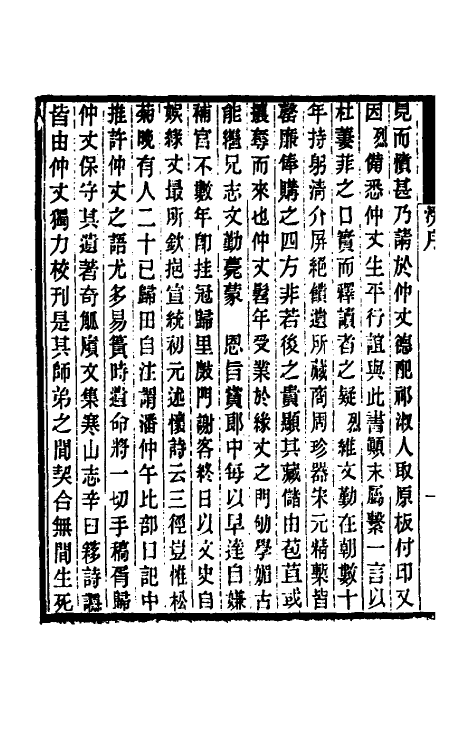 滂序
一
見而憤甚乃請於仲丈德配祁淑人取原板付印又
因烈備悉仲丈生平行誼與此書顛末屬繫一言以
杜萋菲之口實而釋讀者之疑烈維文勤在朝數十
年持躬清介屏絕饋遺所藏商周珍器宋元精槧皆
罄廉俸購之四方非若後之貴顯其藏儲由苞苴或
攘奪而來也仲丈髫年受業於緣丈之門劬學媚古
能繼兄志文勤薨蒙　恩旨賞郎中每以早達自嫌
補官不數年卽挂冠歸里敲門謝客終日以文史自
娛緣丈最所欽挹宣統初元述懷詩云三徑豈惟松
菊晚有人二十已歸田自注謂潘仲午比部日記中
推許仲丈之語尤多易簀時遺命將一切手稿胥歸
仲丈保守其遺著奇觚廎文集寒山志辛臼簃詩讔
皆由仲丈獨力校刊是其師弟之間契合無間生死